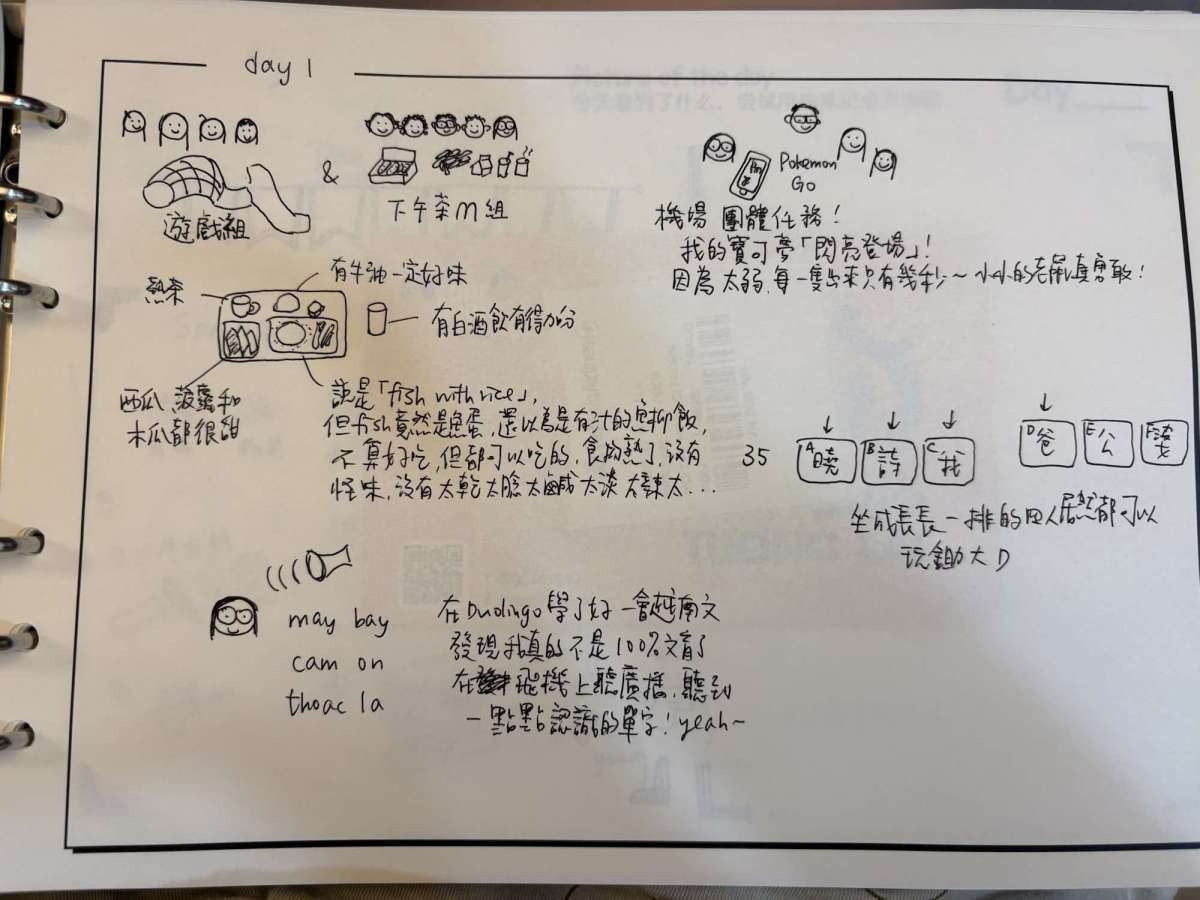 day 1
遊戲組
&
下午茶M組
Pokemon
Go
機場 團體任務!
我的寶可夢「閃亮登場」!
因為太弱,每一隻出來只有幾秒~ 小小的
真勇敢!
熱茶
有牛油一定好味
有白酒飲有得加分
西瓜、菠蘿和
木瓜都很甜
說是「fish with rice」,
但fish竟然是魚蛋,還以為是有汁的魚柳飯,
不算好吃,但都可以吃的,食物熟了,沒有
怪味,沒有太乾太腍太鹹太淡太辣太...
35
A 曉
B 詩
C 我
D 爸
E 公
F 婆
坐成長長一排的四人居然都可以
玩鋤大D
may bay
cam on
thoac la
在Duolingo學了好一會越南文
發現我真的不是100%文盲了
在飛機上聽廣播,聽到
一點點認識的單字! yeah~